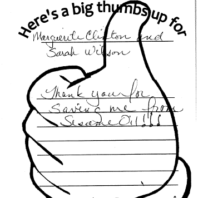 Here's a big thumbs up for
Marguerite Clinton and
Sarah Wilson
Thank you for
saving me from
Sesame Oil!!!